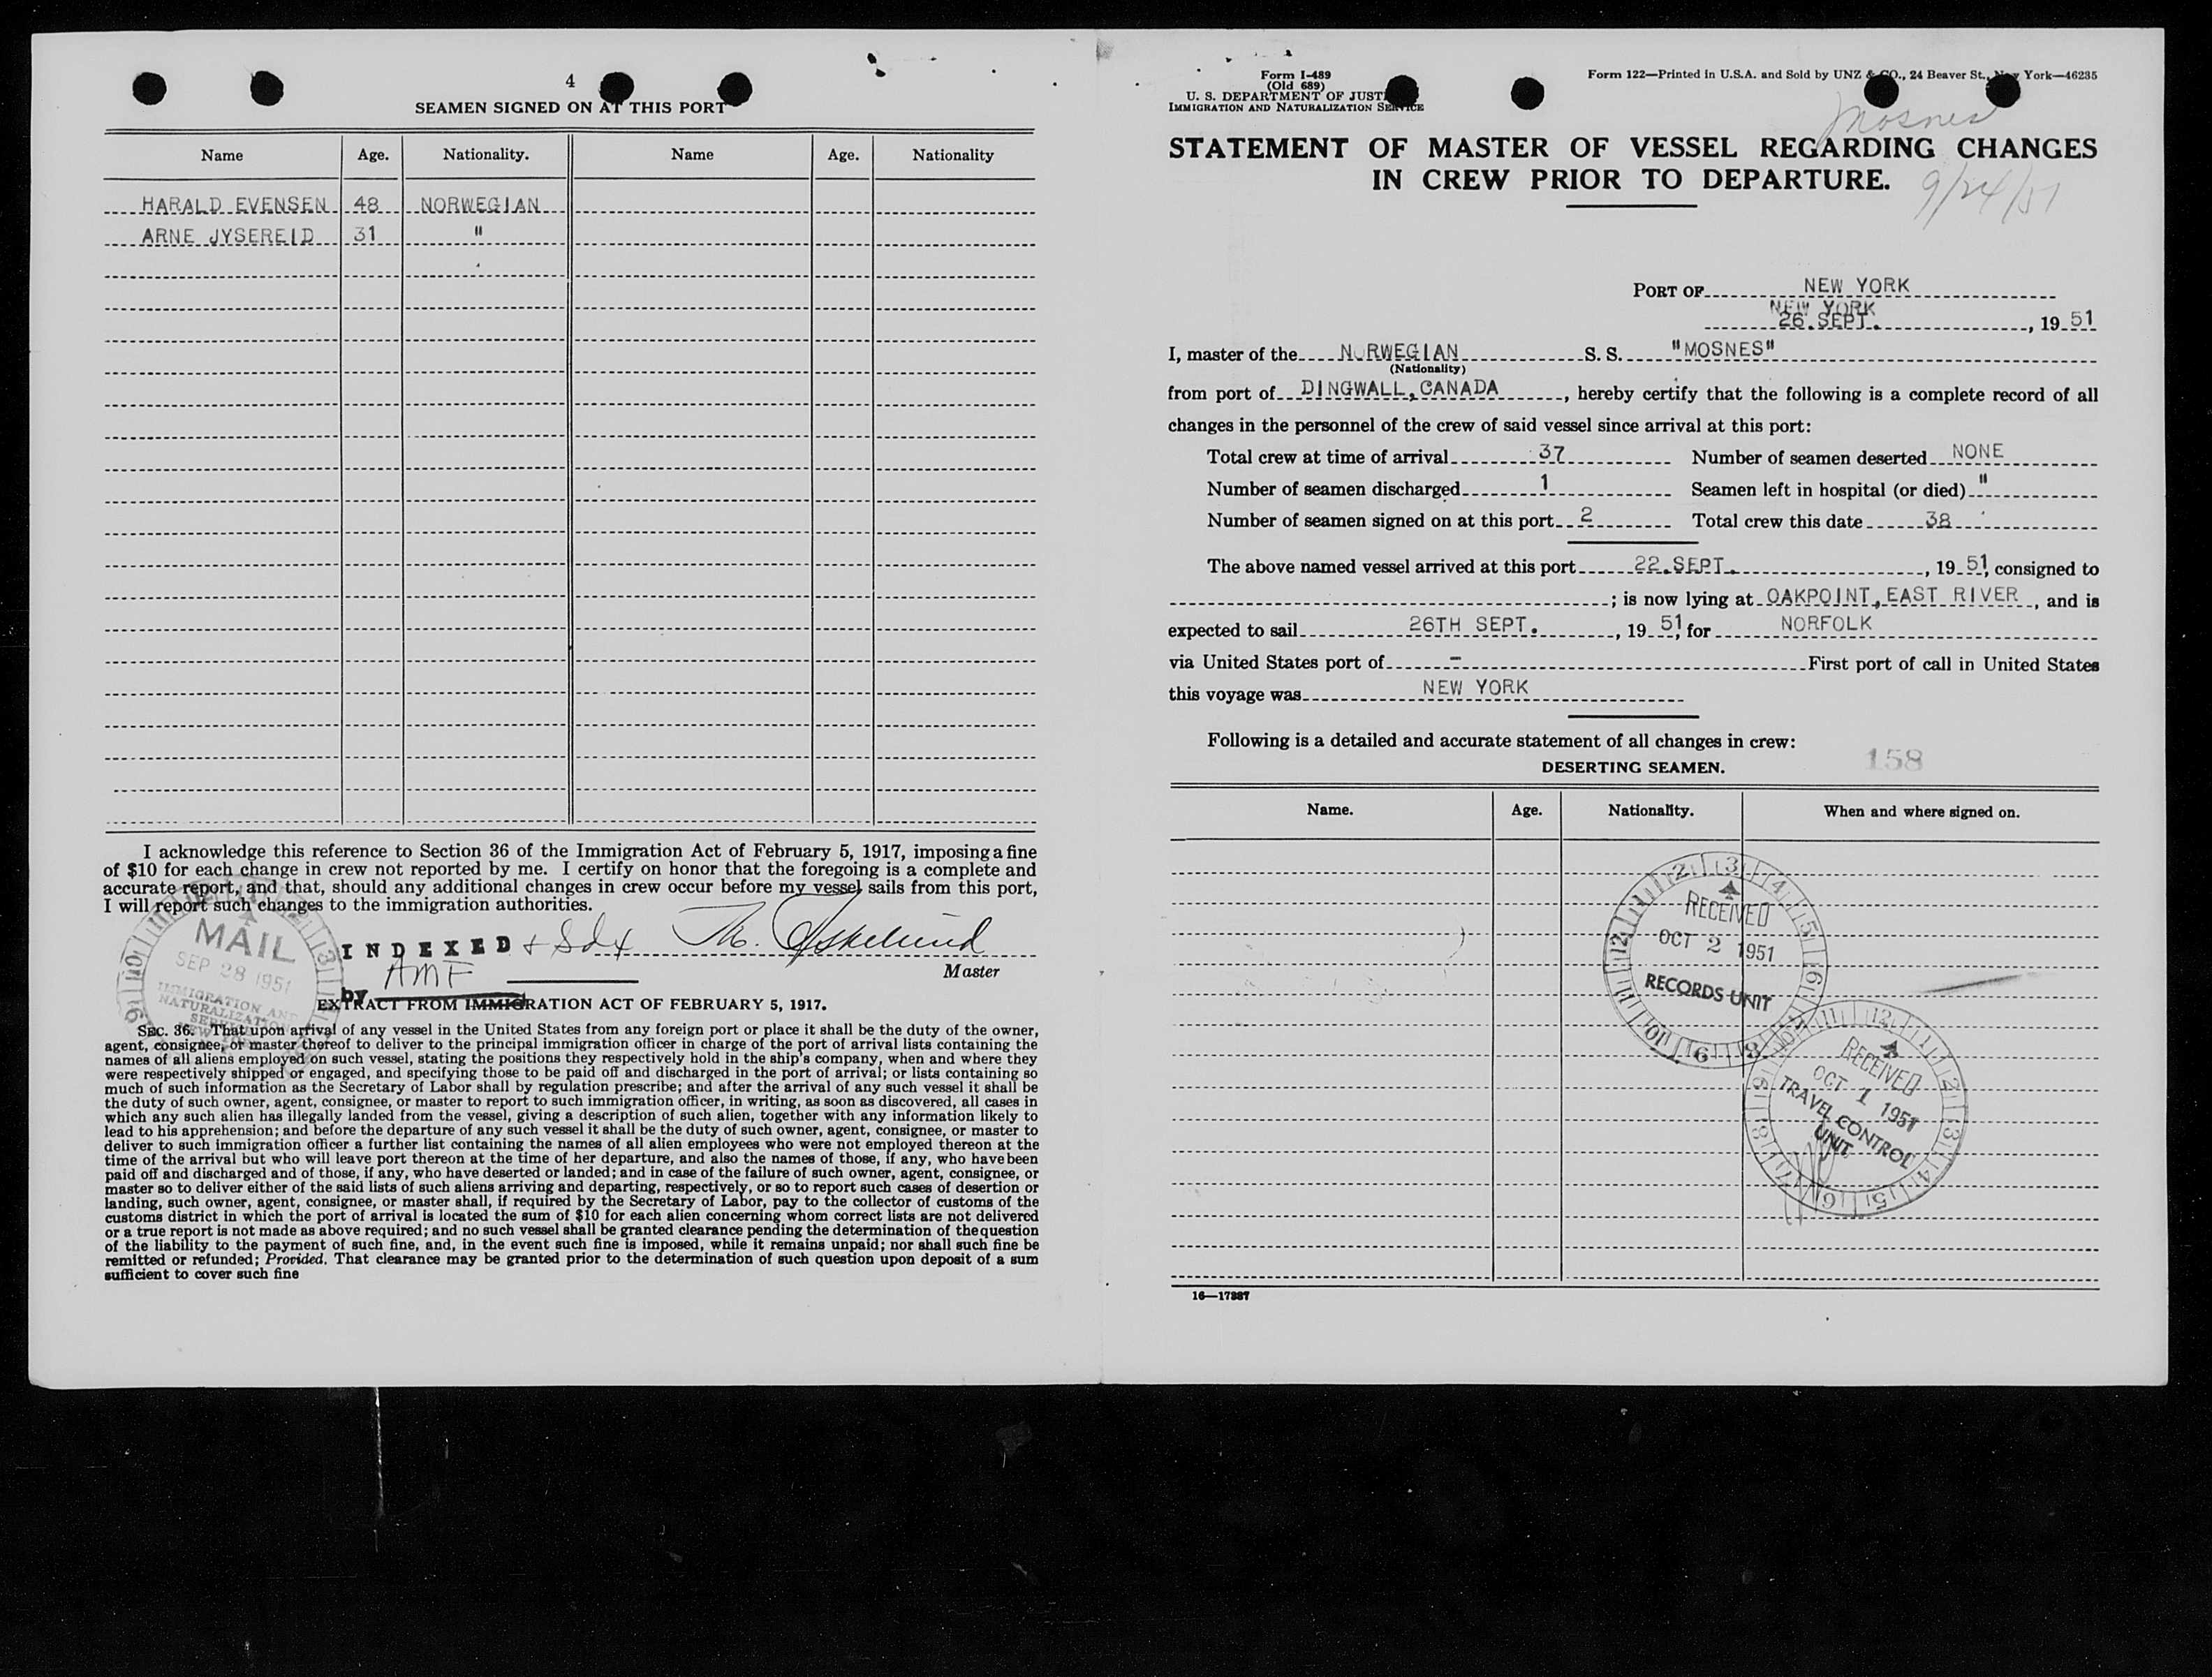 4
SEAMEN SIGNED ON AT THIS PORT
Name Age. Nationality. Name Age. Nationality
HARALD EVENSEN 48 NORWEGIAN
ARNE JYSEREID 31 "
I acknowledge this reference to Section 36 of the Immigration Act of February 5, 1917, imposing a fine
of $10 for each change in crew not reported by me. I certify on honor that the foregoing is a complete and
accurate report, and that, should any additional changes in crew occur before my vessel sails from this port,
I will report such changes to the immigration authorities.
MAIL
SEP 28 1951
IMMIGRATION AND
NATURALIZATION
INDEXED
by AMF
Master
EXTRACT FROM IMMIGRATION ACT OF FEBRUARY 5, 1917.
SEC. 36. That upon arrival of any vessel in the United States from any foreign port or place it shall be the duty of the owner,
agent, consignee, or master thereof to deliver to the principal immigration officer in charge of the port of arrival lists containing the
names of all aliens employed on such vessel, stating the positions they respectively hold in the ship's company, when and where they
were respectively shipped or engaged, and specifying those to be paid off and discharged in the port of arrival; or lists containing so
much of such information as the Secretary of Labor shall by regulation prescribe; and after the arrival of any such vessel it shall be
the duty of such owner, agent, consignee, or master to report to such immigration officer, in writing, as soon as discovered, all cases in
which any such alien has illegally landed from the vessel, giving a description of such alien, together with any information likely to
lead to his apprehension; and before the departure of any such vessel it shall be the duty of such owner, agent, consignee, or master to
deliver to such immigration officer a further list containing the names of all alien employees who were not employed thereon at the
time of the arrival but who will leave port thereon at the time of her departure, and also the names of those, if any, who have been
paid off and discharged and of those, if any, who have deserted or landed; and in case of the failure of such owner, agent, consignee, or
master so to deliver either of the said lists of such aliens arriving and departing, respectively, or so to report such cases of desertion or
landing, such owner, agent, consignee, or master shall, if required by the Secretary of Labor, pay to the collector of customs of the
customs district in which the port of arrival is located the sum of $10 for each alien concerning whom correct lists are not delivered
or a true report is not made as above required; and no such vessel shall be granted clearance pending the determination of the question
of the liability to the payment of such fine, and, in the event such fine is imposed, while it remains unpaid; nor shall such fine be
remitted or refunded; Provided, That clearance may be granted prior to the determination of such question upon deposit of a sum
sufficient to cover such fine
Form I-489
(Old 689)
U. S. DEPARTMENT OF JUSTICE
IMMIGRATION AND NATURALIZATION SERVICE
Form 122—Printed in U.S.A. and Sold by UNZ & CO., 24 Beaver St., New York—46235
Mosnes
STATEMENT OF MASTER OF VESSEL REGARDING CHANGES
IN CREW PRIOR TO DEPARTURE.
9/24/51
PORT OF NEW YORK
NEW YORK
26.SEPT. , 19 51
I, master of the NORWEGIAN S. S. "MOSNES"
(Nationality)
from port of DINGWALL,CANADA , hereby certify that the following is a complete record of all
changes in the personnel of the crew of said vessel since arrival at this port:
Total crew at time of arrival 37 Number of seamen deserted NONE
Number of seamen discharged 1 Seamen left in hospital (or died) "
Number of seamen signed on at this port 2 Total crew this date 38
The above named vessel arrived at this port 22.SEPT. , 19 51, consigned to
; is now lying at OAKPOINT,EAST RIVER , and is
expected to sail 26TH SEPT. , 19 51, for NORFOLK
via United States port of - First port of call in United States
this voyage was NEW YORK
Following is a detailed and accurate statement of all changes in crew:
158
DESERTING SEAMEN.
Name. Age. Nationality. When and where signed on.
RECEIVED
OCT 2 1951
RECORDS UNIT
RECEIVED
OCT 1 1951
TRAVEL CONTROL
UNIT
16—17337